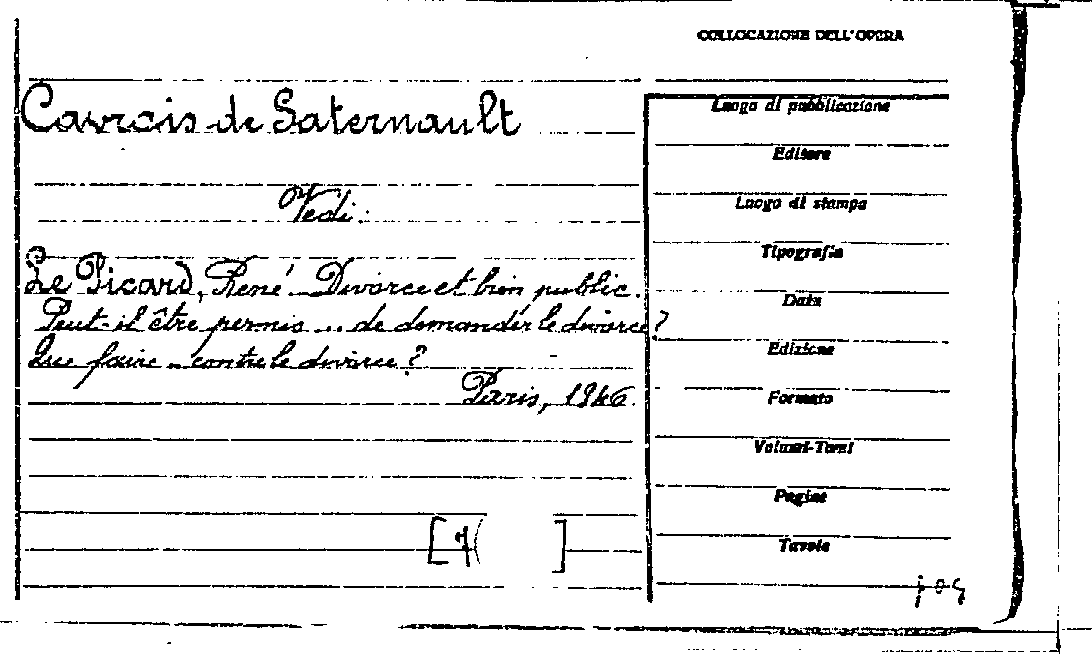 COLLOCAZIONE DELL'OPERA
Cavrois de Saternault
Vedi:
Le Picard, René. Divorce et bien public.
Peut-il être permis ... de demander le divorce?
Que faire .. contre le divorce?
Paris, 1946.
Luogo di pubblicazione
Editore
Luogo di stampa
Tipografia
Data
Edizione
Formato
Volumi-Tomi
Pagine
Tavole